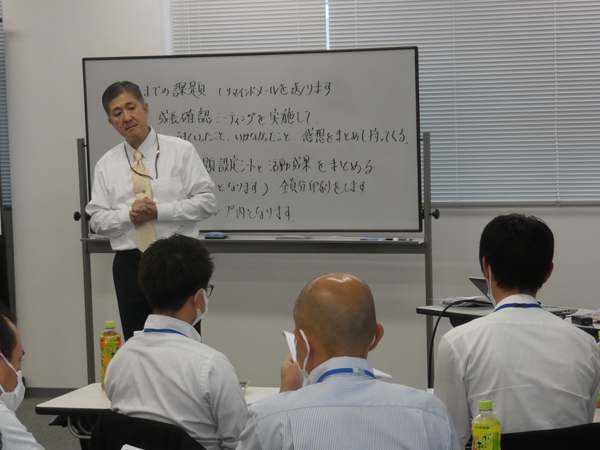 までの課題 (リマインドメールを送ります
成長確認ミーティングを実施して
うまくいったこと、いかなかったこと、感想をまとめて持ってくる。
題設定シートと活動成果をまとめる
となります) 全員分印刷をします
プ内となります.